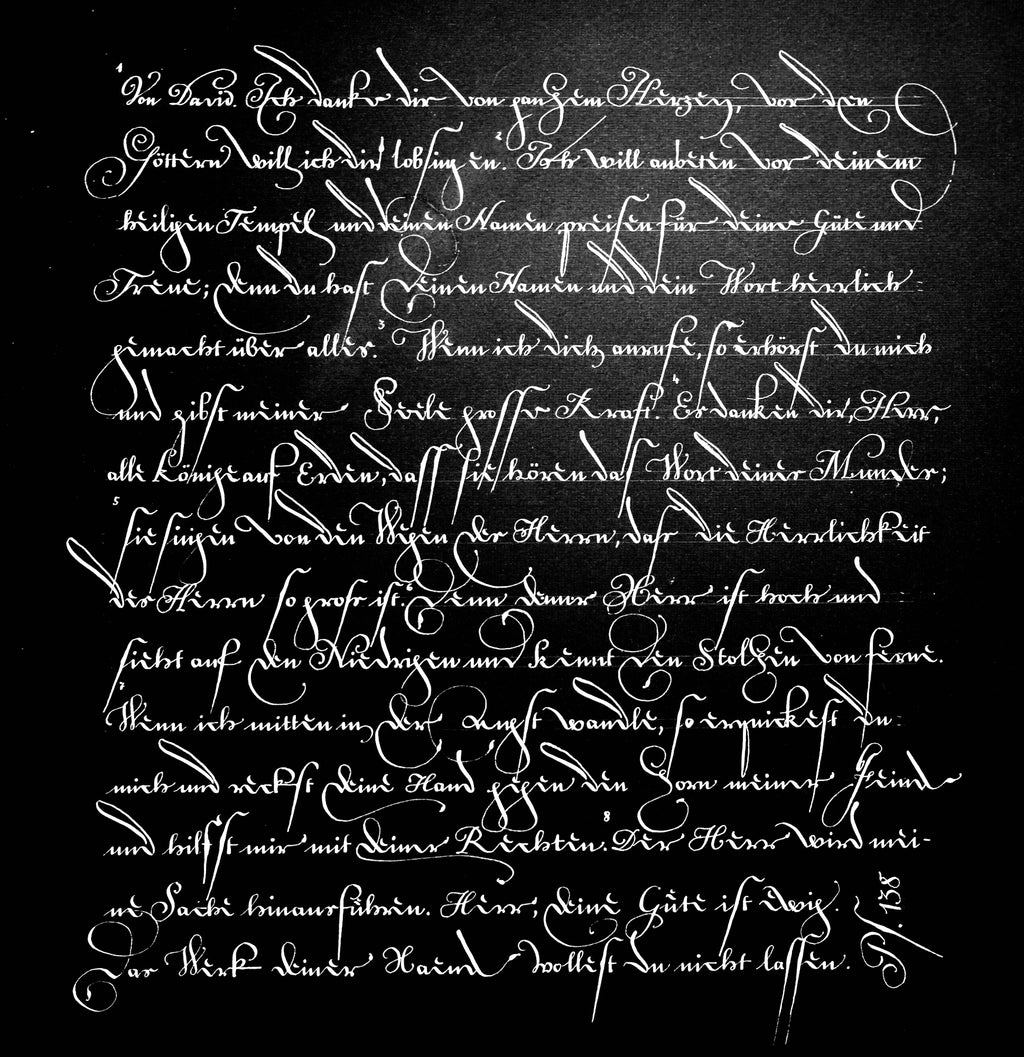 ¹Von David. Ich danke dir von ganzem Herzen, vor den
Göttern will ich dir lobsingen. ²Ich will anbeten vor deinem
heiligen Tempel und deinen Namen preisen für deine Güte und
Treue; denn du hast deinen Namen und dein Wort herrlich
gemacht über alles. ³Wenn ich dich anrufe, so erhörst du mich
und gibst meiner Seele grosse Kraft. ⁴Es danken dir, Herr,
alle Könige auf Erden, dass sie hören das Wort deines Mundes;
⁵sie singen von den Wegen des Herrn, dass die Herrlichkeit
des Herrn so gross ist. ⁶Denn der Herr ist hoch und
sieht auf den Niedrigen und kennt den Stolzen von ferne.
⁷Wenn ich mitten in der Angst wandle, so erquickest du
mich und reckst deine Hand gegen den Zorn meiner Feind
und hilfst mir mit deiner Rechten. ⁸Der Herr wird mei-
ne Sache hinausführen. Herr, deine Güte ist ewig.
Das Werk deiner Haend wollest du nicht lassen.
Ps. 138